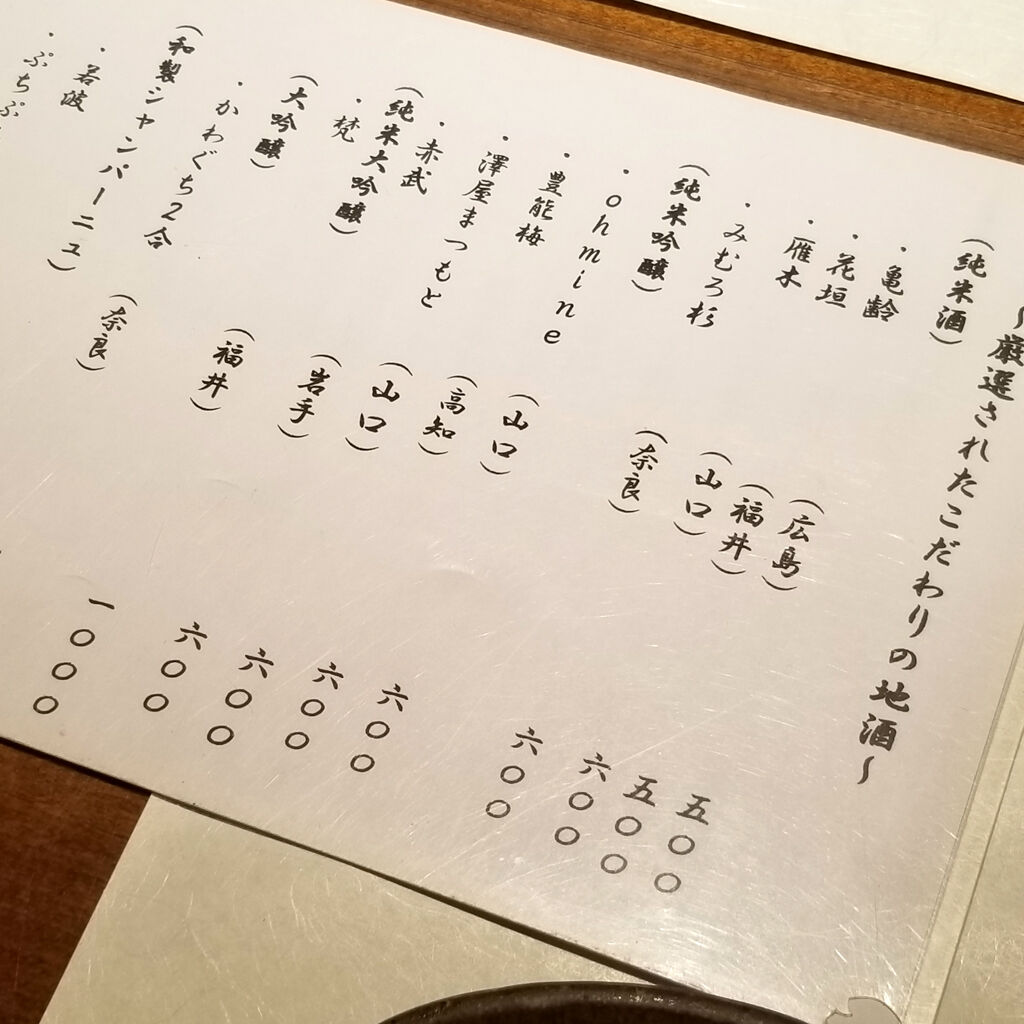 〜厳選されたこだわりの地酒〜
(純米酒)
・亀齢 (広島) 五〇〇
・花垣 (福井) 五〇〇
・雁木 (山口) 六〇〇
・みむろ杉 (奈良) 六〇〇
(純米吟醸)
・ohmine (山口) 六〇〇
・豊能梅 (高知) 六〇〇
・澤屋まつもと (山口) 六〇〇
・赤武 (岩手) 六〇〇
(純米大吟醸)
・梵 (福井) 一〇〇〇
(大吟醸)
・かわぐち2合 (奈良)
(和製シャンパーニュ)
・若波
・ぷちぷ